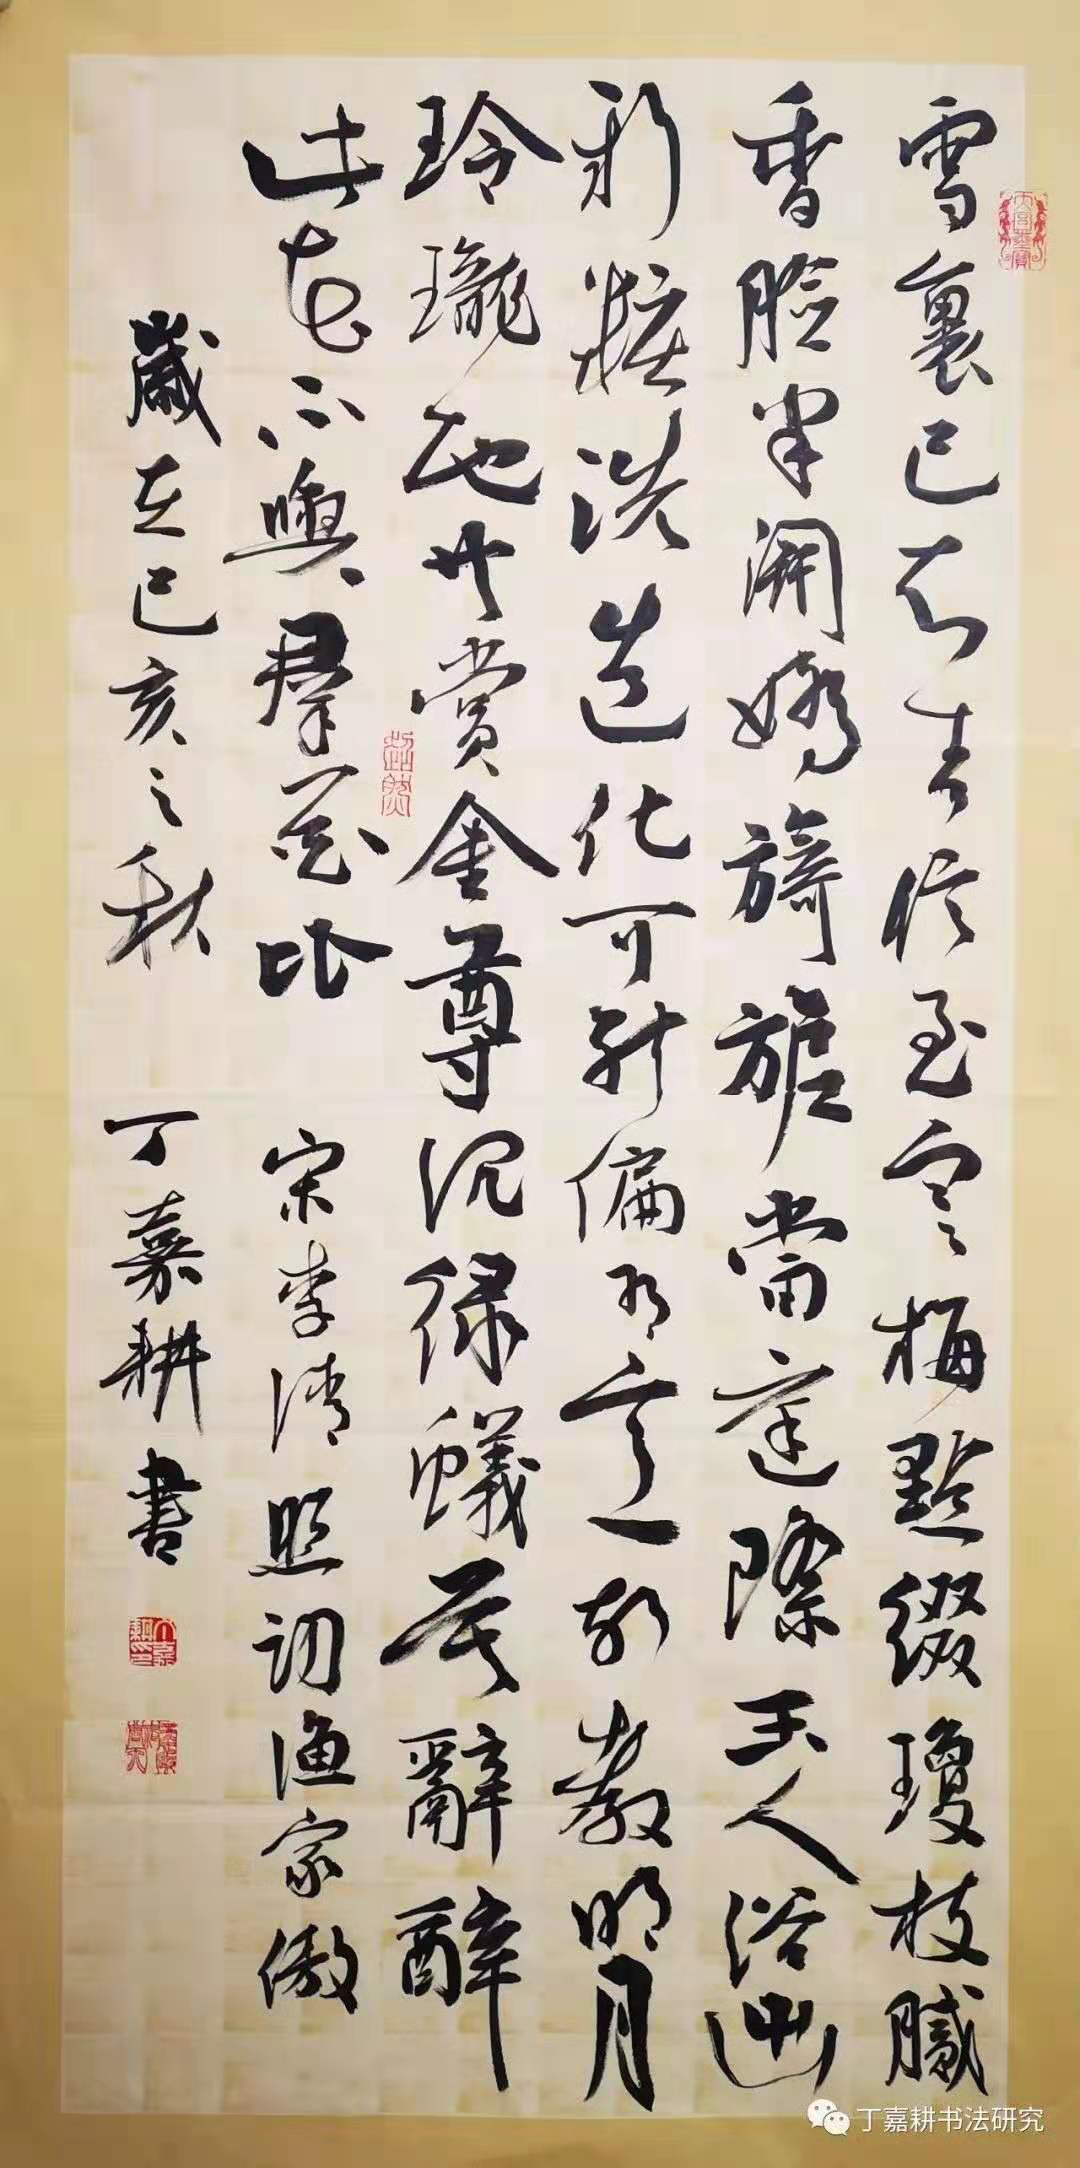 雪裏已知春信至寒梅點綴瓊枝膩
香臉半開嬌旖旎當庭際玉人浴出
新粧洗造化可能偏有意故教明月
玲瓏地共賞金尊沉綠蟻莫辭醉
此花不與羣花比 宋李清照詞漁家傲
歲在己亥之秋 丁嘉耕書
超然
丁嘉耕书法研究